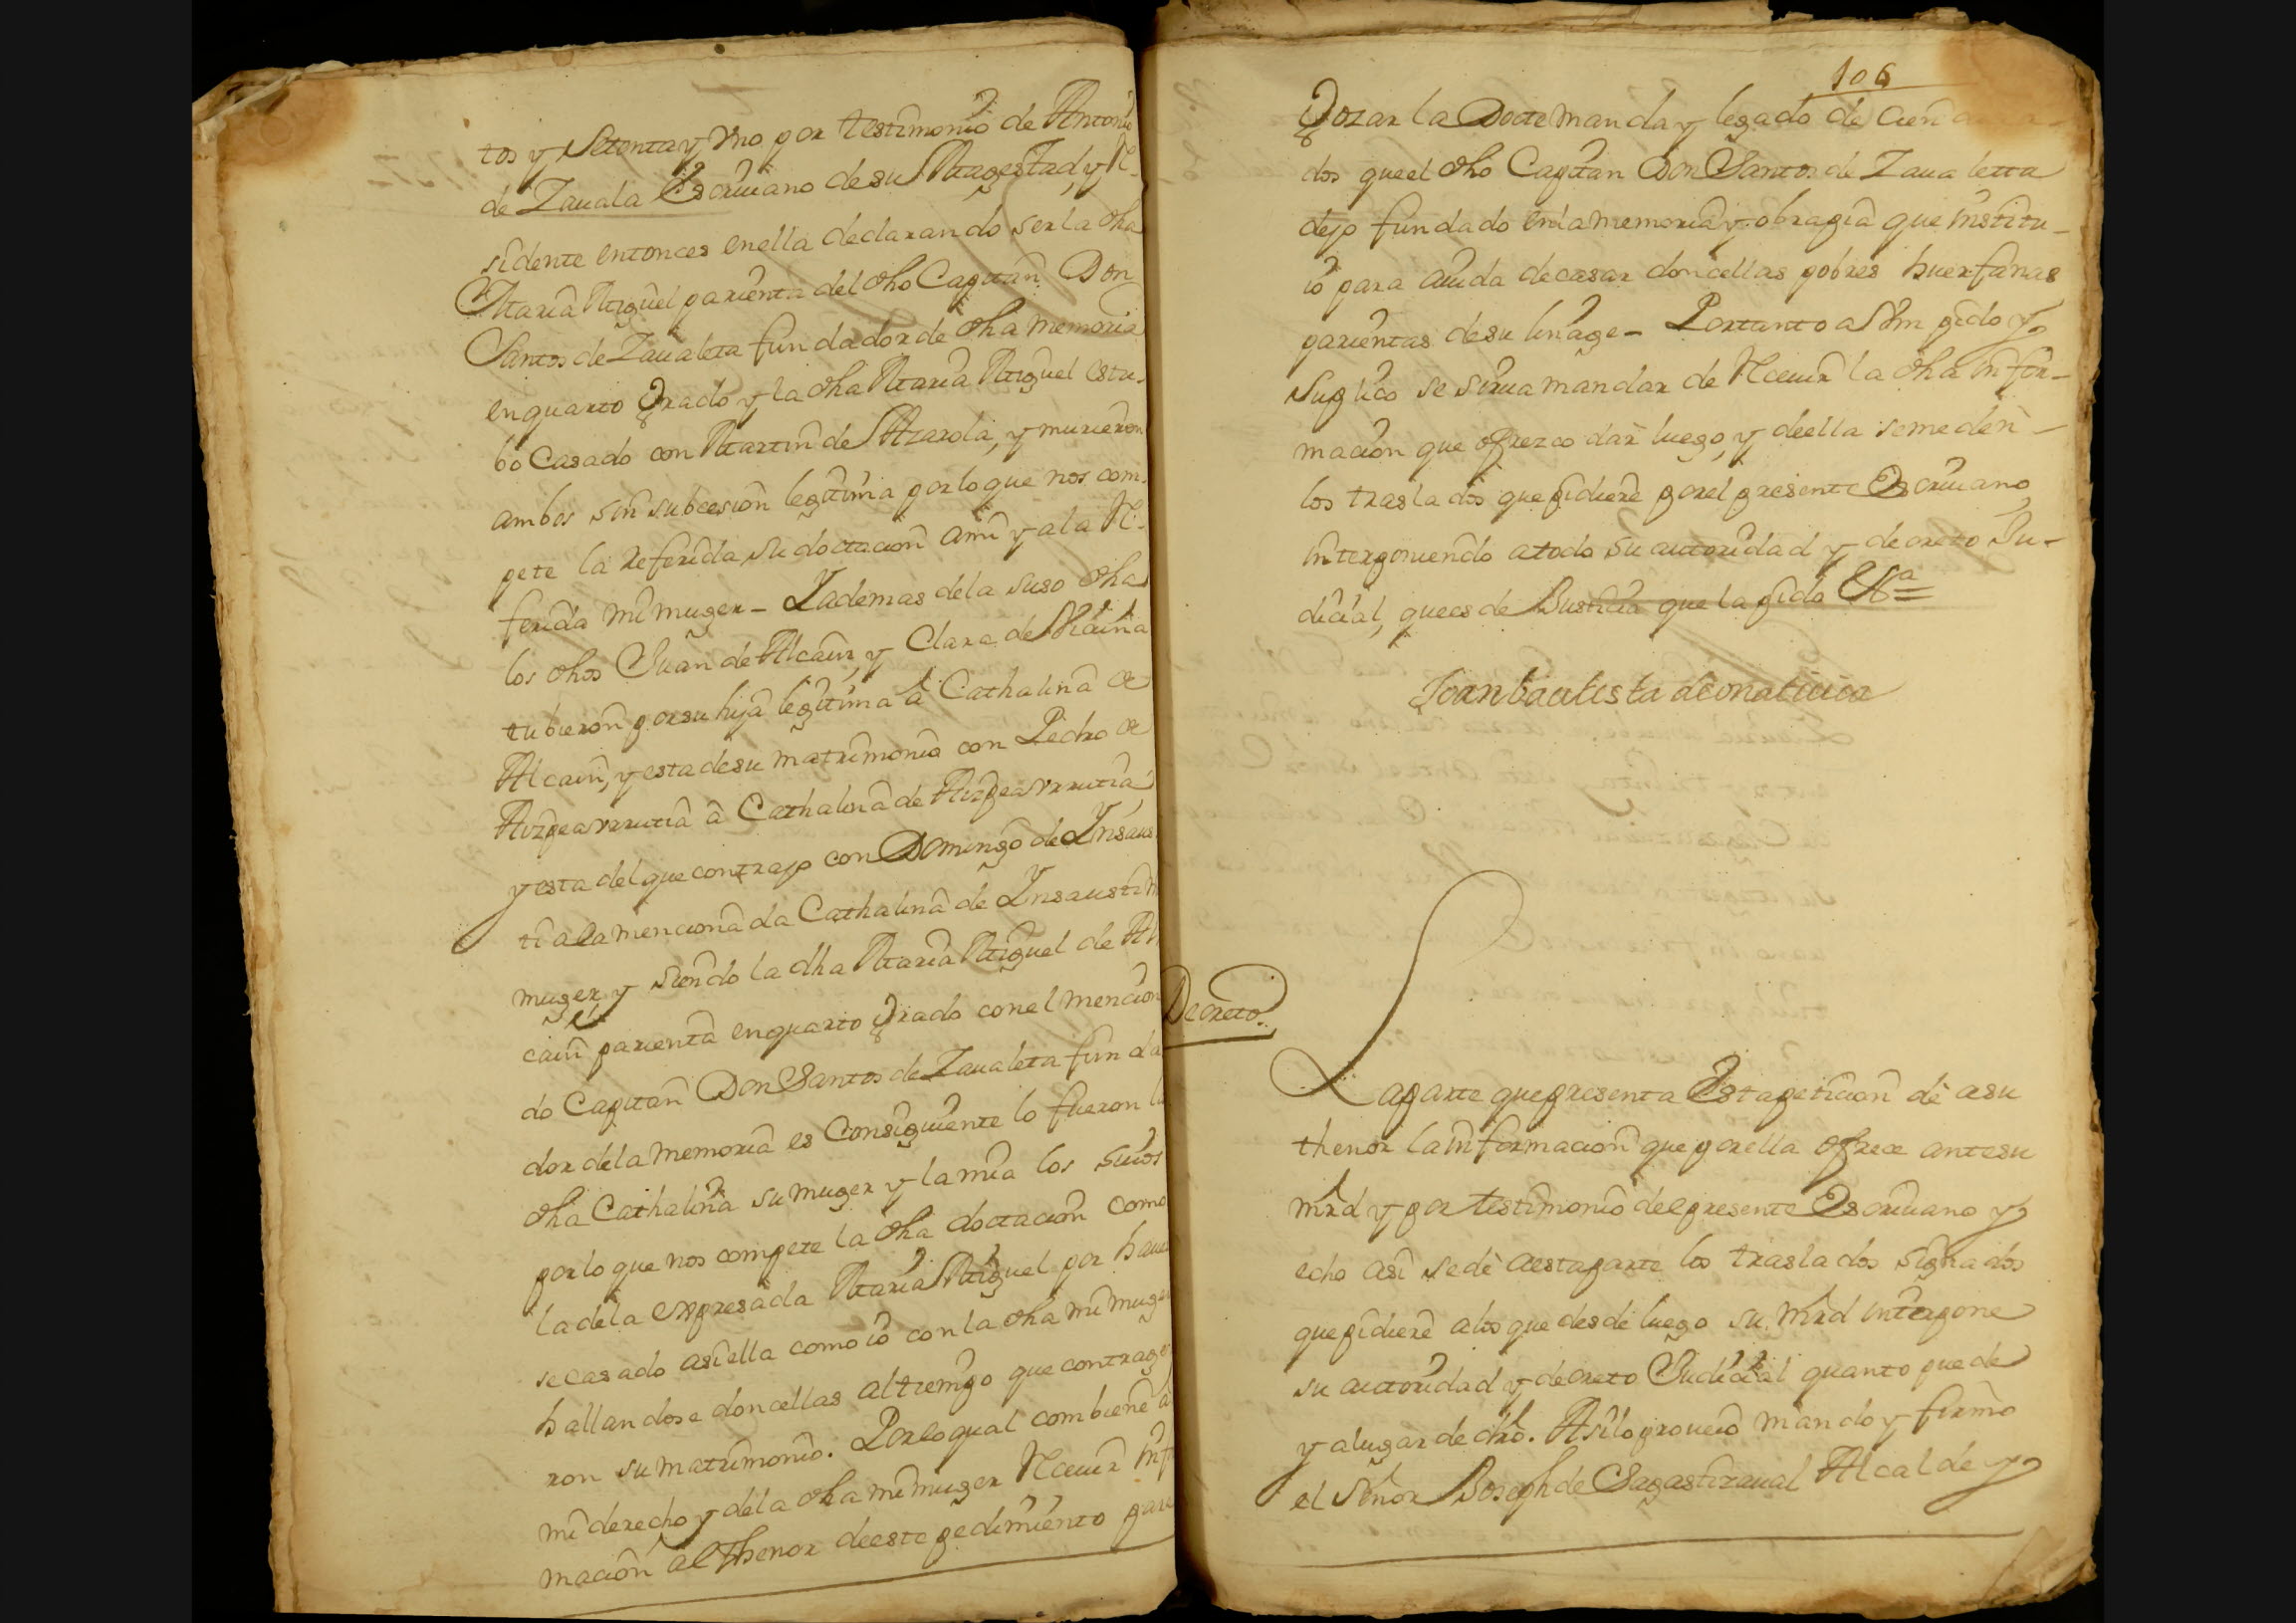 tos y Setenta y Vno por testimonio de Antonio
de Zauala Escriuano de su Magestad, y Re-
sidente entonces en ella declarando ser la dha
Maria Miguel parienta del dho Capitan Don
Santos de Zaualeta fundador de dha memoria
en quarto Grado y la dha Maria Miguel estu-
bo Casado con Martin de Azarola, y murieron
ambos sin subcesion legitima por lo que nos com-
pete la referida su doctacion a mi y a la Re-
ferida mi muger - Y ademas de la suso dha
los dhos Juan de Alcain, y Clara de
tubieron por su hija legitima â Cathalina de
Alcain, y esta de su matrimonio con Pedro de
Aizpea vrrutia â Cathalina de Aizpea vrrutia,
y esta del que contrajo con Domingo de Ynsaus
ti a la mencionada Cathalina de Ynsausti mi
muger, y siendo la dha Maria Miguel de Al
cain parienta en quarto Grado con el mencion
do Capitan Don Santos de Zaualeta funda
dor de la memoria es Consiguiente lo fueron la
dha Cathalina su muger y la mia los suios
por lo que nos compete la dha doctacion como
la de la expresada Maria Miguel por hauer
se casado asi ella como io con la dha mi muger
hallandose doncellas al tiempo que contrage
ron su matrimonio. Por lo qual combiene a
mi derecho y de la dha mi muger Reciuir Infr
macion al thenor de este pedimiento para
106
Gozar la Docte manda y legado de cien
dos que el dho Capitan Don Santos de Zaualetta
dejo fundado en la memoria y obra pia que institu-
io para aiuda de casar doncellas pobres huerfanas
parientas de su linage - Por tanto a Vm pido y
Suplico se sirua mandar de Reciuir la dha infor-
macion que ofrezco dar luego, y de ella se me den -
los traslados que pidiere por el presente Escriuano,
interponiendo a todo su autoridad y decreto Ju-
dicial, que es de Justicia que la pido &a
Joan bautista de onatiuia
Decreto.
La parte que presenta Esta peticion dè a su
thenor la informacion que por ella ofrece ante su
mrd y por testimonio del presente Escriuano y
echo asi se dè a esta parte los traslados signados
que pidiere a los que desde luego su mrd interpone
su auctoridad y decreto Judicial quanto puede
y a lugar de dro. Asi lo proueio mando y firmo
el Señor Joseph de Sagastizaual Alcalde y